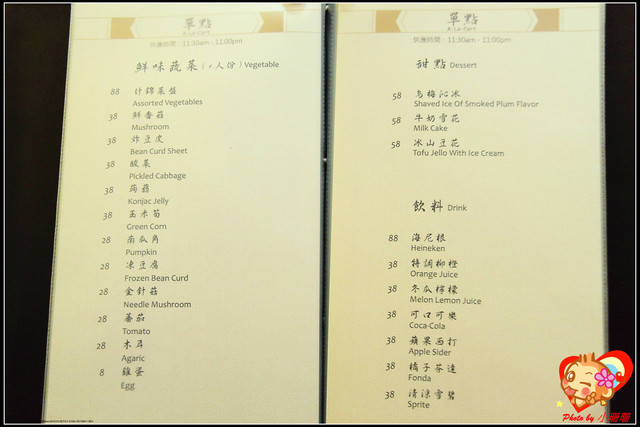 單點
A-La-Cart
供應時間：11:30am - 11:00pm
鮮味蔬菜(1人份) Vegetable
88 什錦菜盤
Assorted Vegetables
38 鮮香菇
Mushroom
38 炸豆皮
Bean Curd Sheet
38 酸菜
Pickled Cabbage
38 蒟蒻
Konjac Jelly
38 玉米筍
Green Corn
28 南瓜角
Pumpkin
28 凍豆腐
Frozen Bean Curd
28 金針菇
Needle Mushroom
28 蕃茄
Tomato
28 木耳
Agaric
8 雞蛋
Egg
單點
A-La-Cart
供應時間：11:30am - 11:00pm
甜點 Dessert
58 烏梅沁冰
Shaved Ice Of Smoked Plum Flavor
58 牛奶雪花
Milk Cake
58 冰山豆花
Tofu Jello With Ice Cream
飲料 Drink
88 海尼根
Heineken
38 特調柳橙
Orange Juice
38 冬瓜檸檬
Melon Lemon Juice
38 可口可樂
Coca-Cola
38 蘋果西打
Apple Sider
38 橘子芬達
Fonda
38 清涼雪碧
Sprite
Photo by 小珊珊